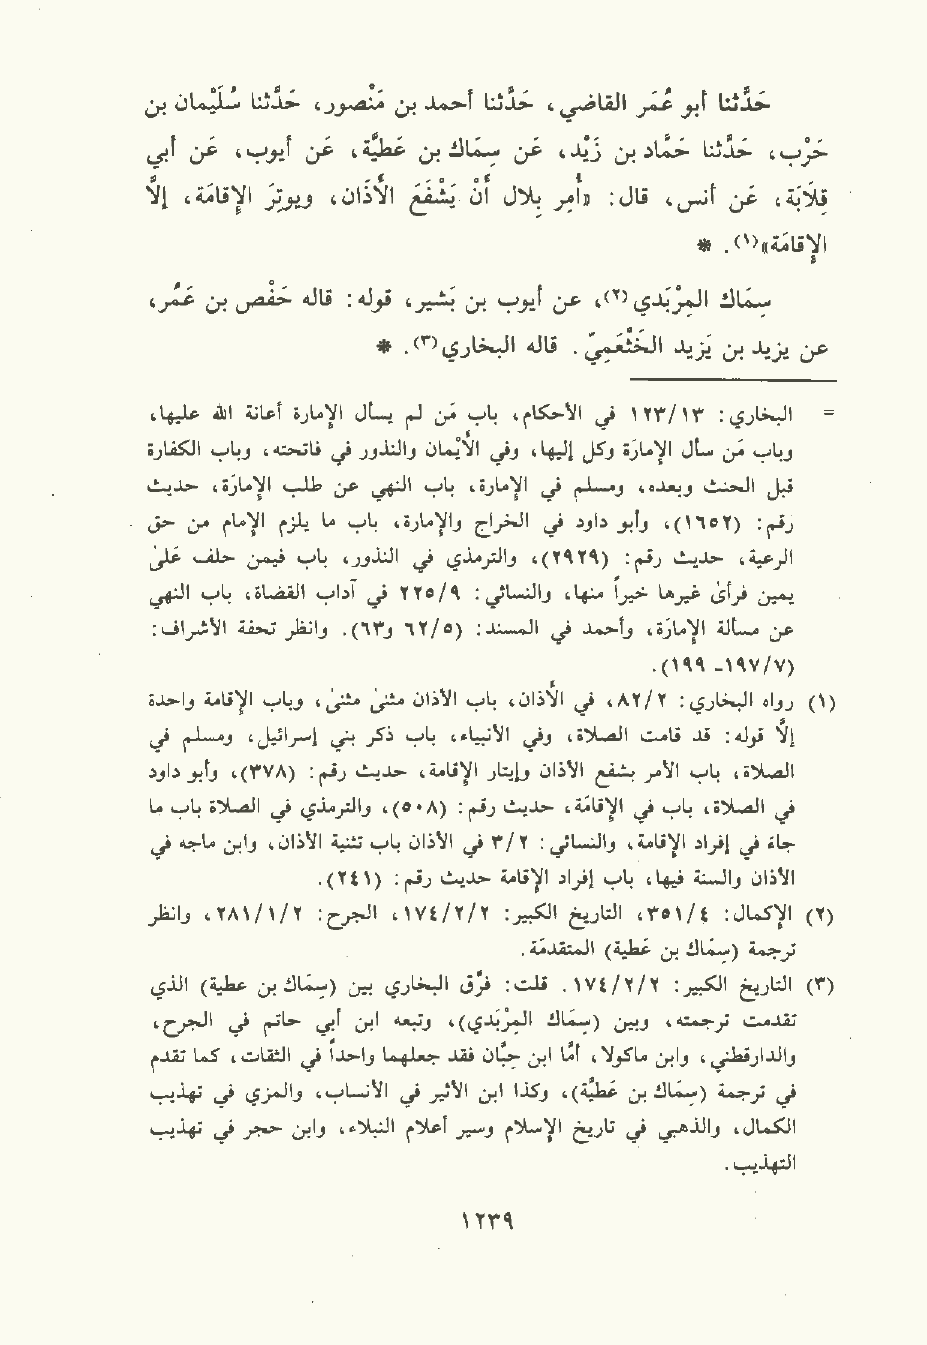 حَدَّثنا أبو عُمَر القاضي، حَدَّثنا أحمد بن مَنْصور، حَدَّثنا سُلَيْمان بن
حَرْب، حَدَّثنا حَمَّاد بن زَيْد، عَن سِمَاك بن عَطيَّة، عَن أيوب، عَن أبي
قِلَابَة، عَن أنس، قال: «أُمِر بِلال أنْ يَشْفَعَ الأذَان، ويوتِرَ الإقَامَة، إلَّا
الإقَامَة»(١). *
سِمَاك المِرْبَدي(٢)، عن أيوب بن بَشير، قوله: قاله حَفْص بن عُمَر،
عن يزيد بن يَزيد الخَثْعَمِيّ. قاله البخاري(٣). *
= البخاري: ١٢٣/١٣ في الأحكام، باب مَن لم يسأل الإمارة أعانه الله عليها،
وباب مَن سأل الإمارَة وكل إليها، وفي الأيْمان والنذور في فاتحته، وباب الكفارة
قبل الحنث وبعده، ومسلم في الإمارة، باب النهي عن طلب الإمارَة، حديث
رقم: (١٦٥٢)، وأبو داود في الخراج والإمارة، باب ما يلزم الإمام من حق
الرعية، حديث رقم: (٢٩٢٩)، والترمذي في النذور، باب فيمن حلف عَلىٰ
يمين فرأىٰ غيرها خيراً منها، والنسائي: ٢٢٥/٩ في آداب القضاة، باب النهي
عن مسألة الإمارَة، وأحمد في المسند: (٦٢/٥ و٦٣). وانظر تحفة الأشراف:
(١٩٧/٧- ١٩٩).
(١) رواه البخاري: ٨٢/٢، في الأذان، باب الأذان مثنىٰ مثنىٰ، وباب الإقامة واحدة
إلَّا قوله: قد قامت الصلاة، وفي الأنبياء، باب ذكر بني إسرائيل، ومسلم في
الصلاة، باب الأمر بشفع الأذان وإيتار الإقامة، حديث رقم: (٣٧٨)، وأبو داود
في الصلاة، باب في الإقامَة، حديث رقم: (٥٠٨)، والترمذي في الصلاة باب ما
جاء في إفراد الإقامة، والنسائي: ٣/٢ في الأذان باب تثنية الأذان، وابن ماجه في
الأذان والسنة فيها، باب إفراد الإقامة حديث رقم: (٢٤١).
(٢) الإكمال: ٣٥١/٤، التاريخ الكبير: ١٧٤/٢/٢، الجرح: ٢٨١/١/٢، وانظر
ترجمة (سِمَاك بن عَطية) المتقدمَة.
(٣) التاريخ الكبير: ١٧٤/٢/٢. قلت: فرَّق البخاري بين (سِمَاك بن عطية) الذي
تقدمت ترجمته، وبين (سِمَاك المِرْبَدي)، وتبعه ابن أبي حاتم في الجرح،
والدارقطني، وابن ماكولا، أمَّا ابن حِبَّان فقد جعلهما واحداً في الثقات، كما تقدم
في ترجمة (سِمَاك بن عَطيَّة)، وكذا ابن الأثير في الأنساب، والمزي في تهذيب
الكمال، والذهبي في تاريخ الإسلام وسير أعلام النبلاء، وابن حجر في تهذيب
التهذيب.
١٢٣٩